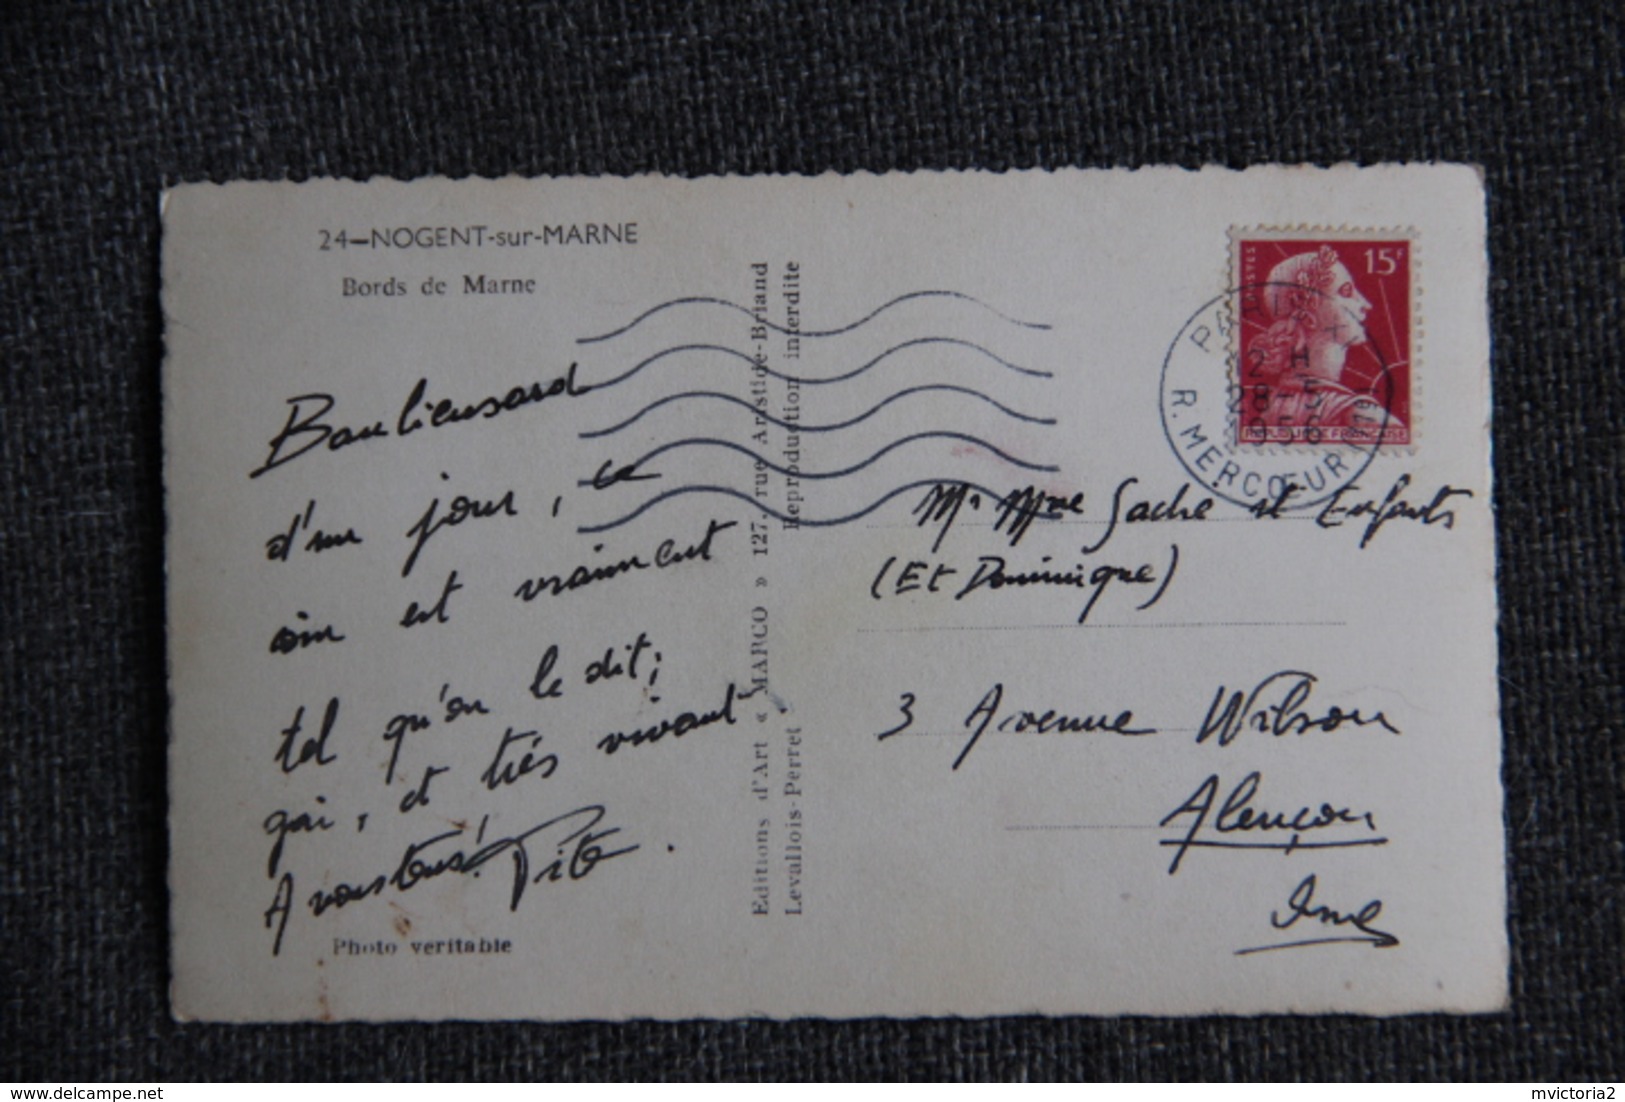 24-NOGENT-sur-MARNE
Bords de Marne
Banlieusard
d'un jour, ce
coin est vraiment
tel qu'on le dit;
gai, et très vivant.
A vous tous!
Photo veritable
Editions d'Art « MARCO » 127, rue Aristide-Briand
Levallois-Perret Reproduction interdite
POSTES
15F
REPUBLIQUE FRANCAISE
PARIS XI
R. MERCŒUR (11e)
28-5
Mr Mme Gache et Enfants
(Et Dominique)
3 Avenue Wilson
Alençon
Orne
delcampe.net
mvictoria2